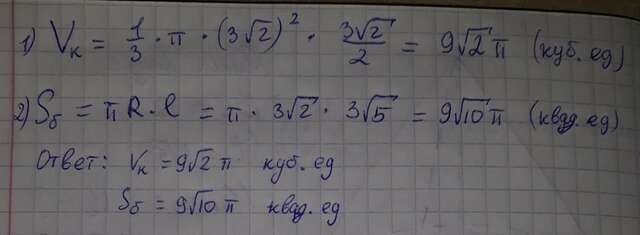 1) Vк = 1/3 · π · (3√2)² · 3√2/2 = 9√2 π (куб. ед)
2) Sб = πR · l = π · 3√2 · 3√5 = 9√10 π (квад. ед)
Ответ: Vк = 9√2 π куб. ед
Sб = 9√10 π квад. ед